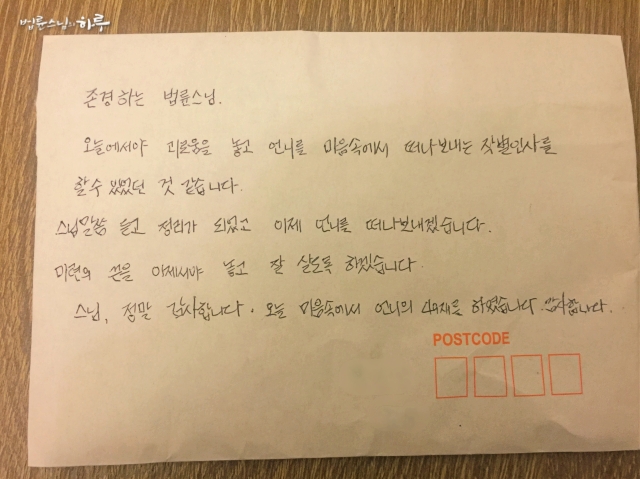 법륜스님의 하루
존경하는 법륜스님.
오늘에서야 괴로움을 놓고 언니를 마음속에서 떠나보내는 작별인사를
할수 있었던 것 같습니다.
스님말씀 듣고 정리가 되었고 이제 언니를 떠나보내겠습니다.
미련의 끈을 이제서야 놓고 잘 살도록 하겠습니다.
스님, 정말 감사합니다. 오늘 마음속에서 언니의 49재를 하였습니다. 감사합니다.
POSTCODE